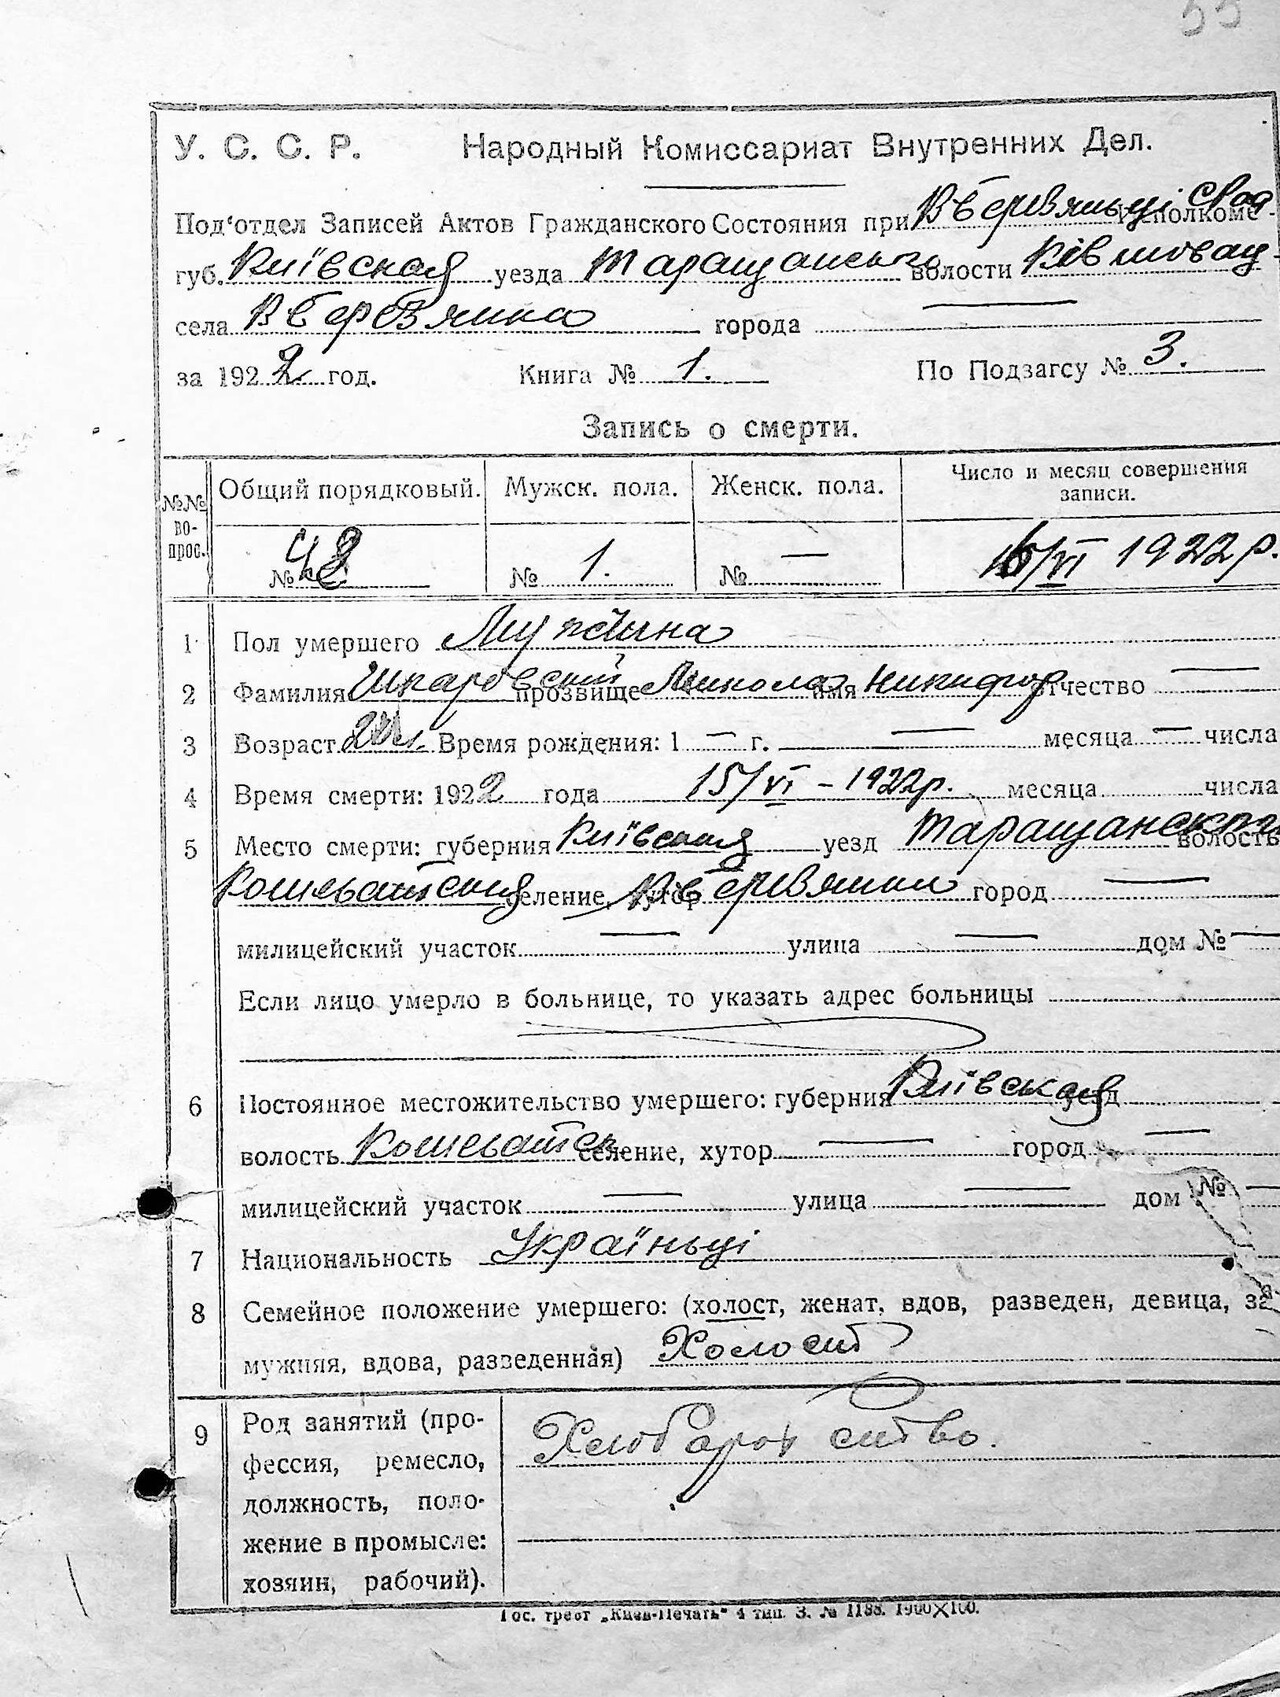 55
У. С. С. Р. Народный Комиссариат Внутренних Дел.
Под‘отдел Записей Актов Гражданского Состояния при Исполкоме
губ. Київская уезда Таращанського волости
села города —
за 1922 год. Книга № 1. По Подзагсу № 3.
Запись о смерти.
№№ во- прос. Общий порядковый. Мужск. пола. Женск. пола. Число и месяц совершения записи.
№ 48 № 1. № — 16/VI 1922 р.
1 Пол умершего Мужчина
2 Фамилия Шкаровский прозвище Микола имя Никифор отчество —
3 Возраст Время рождения: 1 — г. — месяца — числа
4 Время смерти: 1922 года 15/VI – 1922 р. месяца числа
5 Место смерти: губерния Київская уезд Таращанского волость
Кошеватская селение, хутор город —
милицейский участок — улица — дом № —
Если лицо умерло в больнице, то указать адрес больницы
6 Постоянное местожительство умершего: губерния Київская уезд
волость Кошеватск селение, хутор — город —
милицейский участок — улица — дом № —
7 Национальность Українці
8 Семейное положение умершего: (холост, женат, вдов, разведен, девица, за-
мужняя, вдова, разведенная) Холост
9 Род занятий (про- фессия, ремесло, должность, поло- жение в промысле: хозяин, рабочий). Хлюбароб ство.
Гос. трест „Киев-Печать“ 4 тип. З. № 1188. 1900×100.